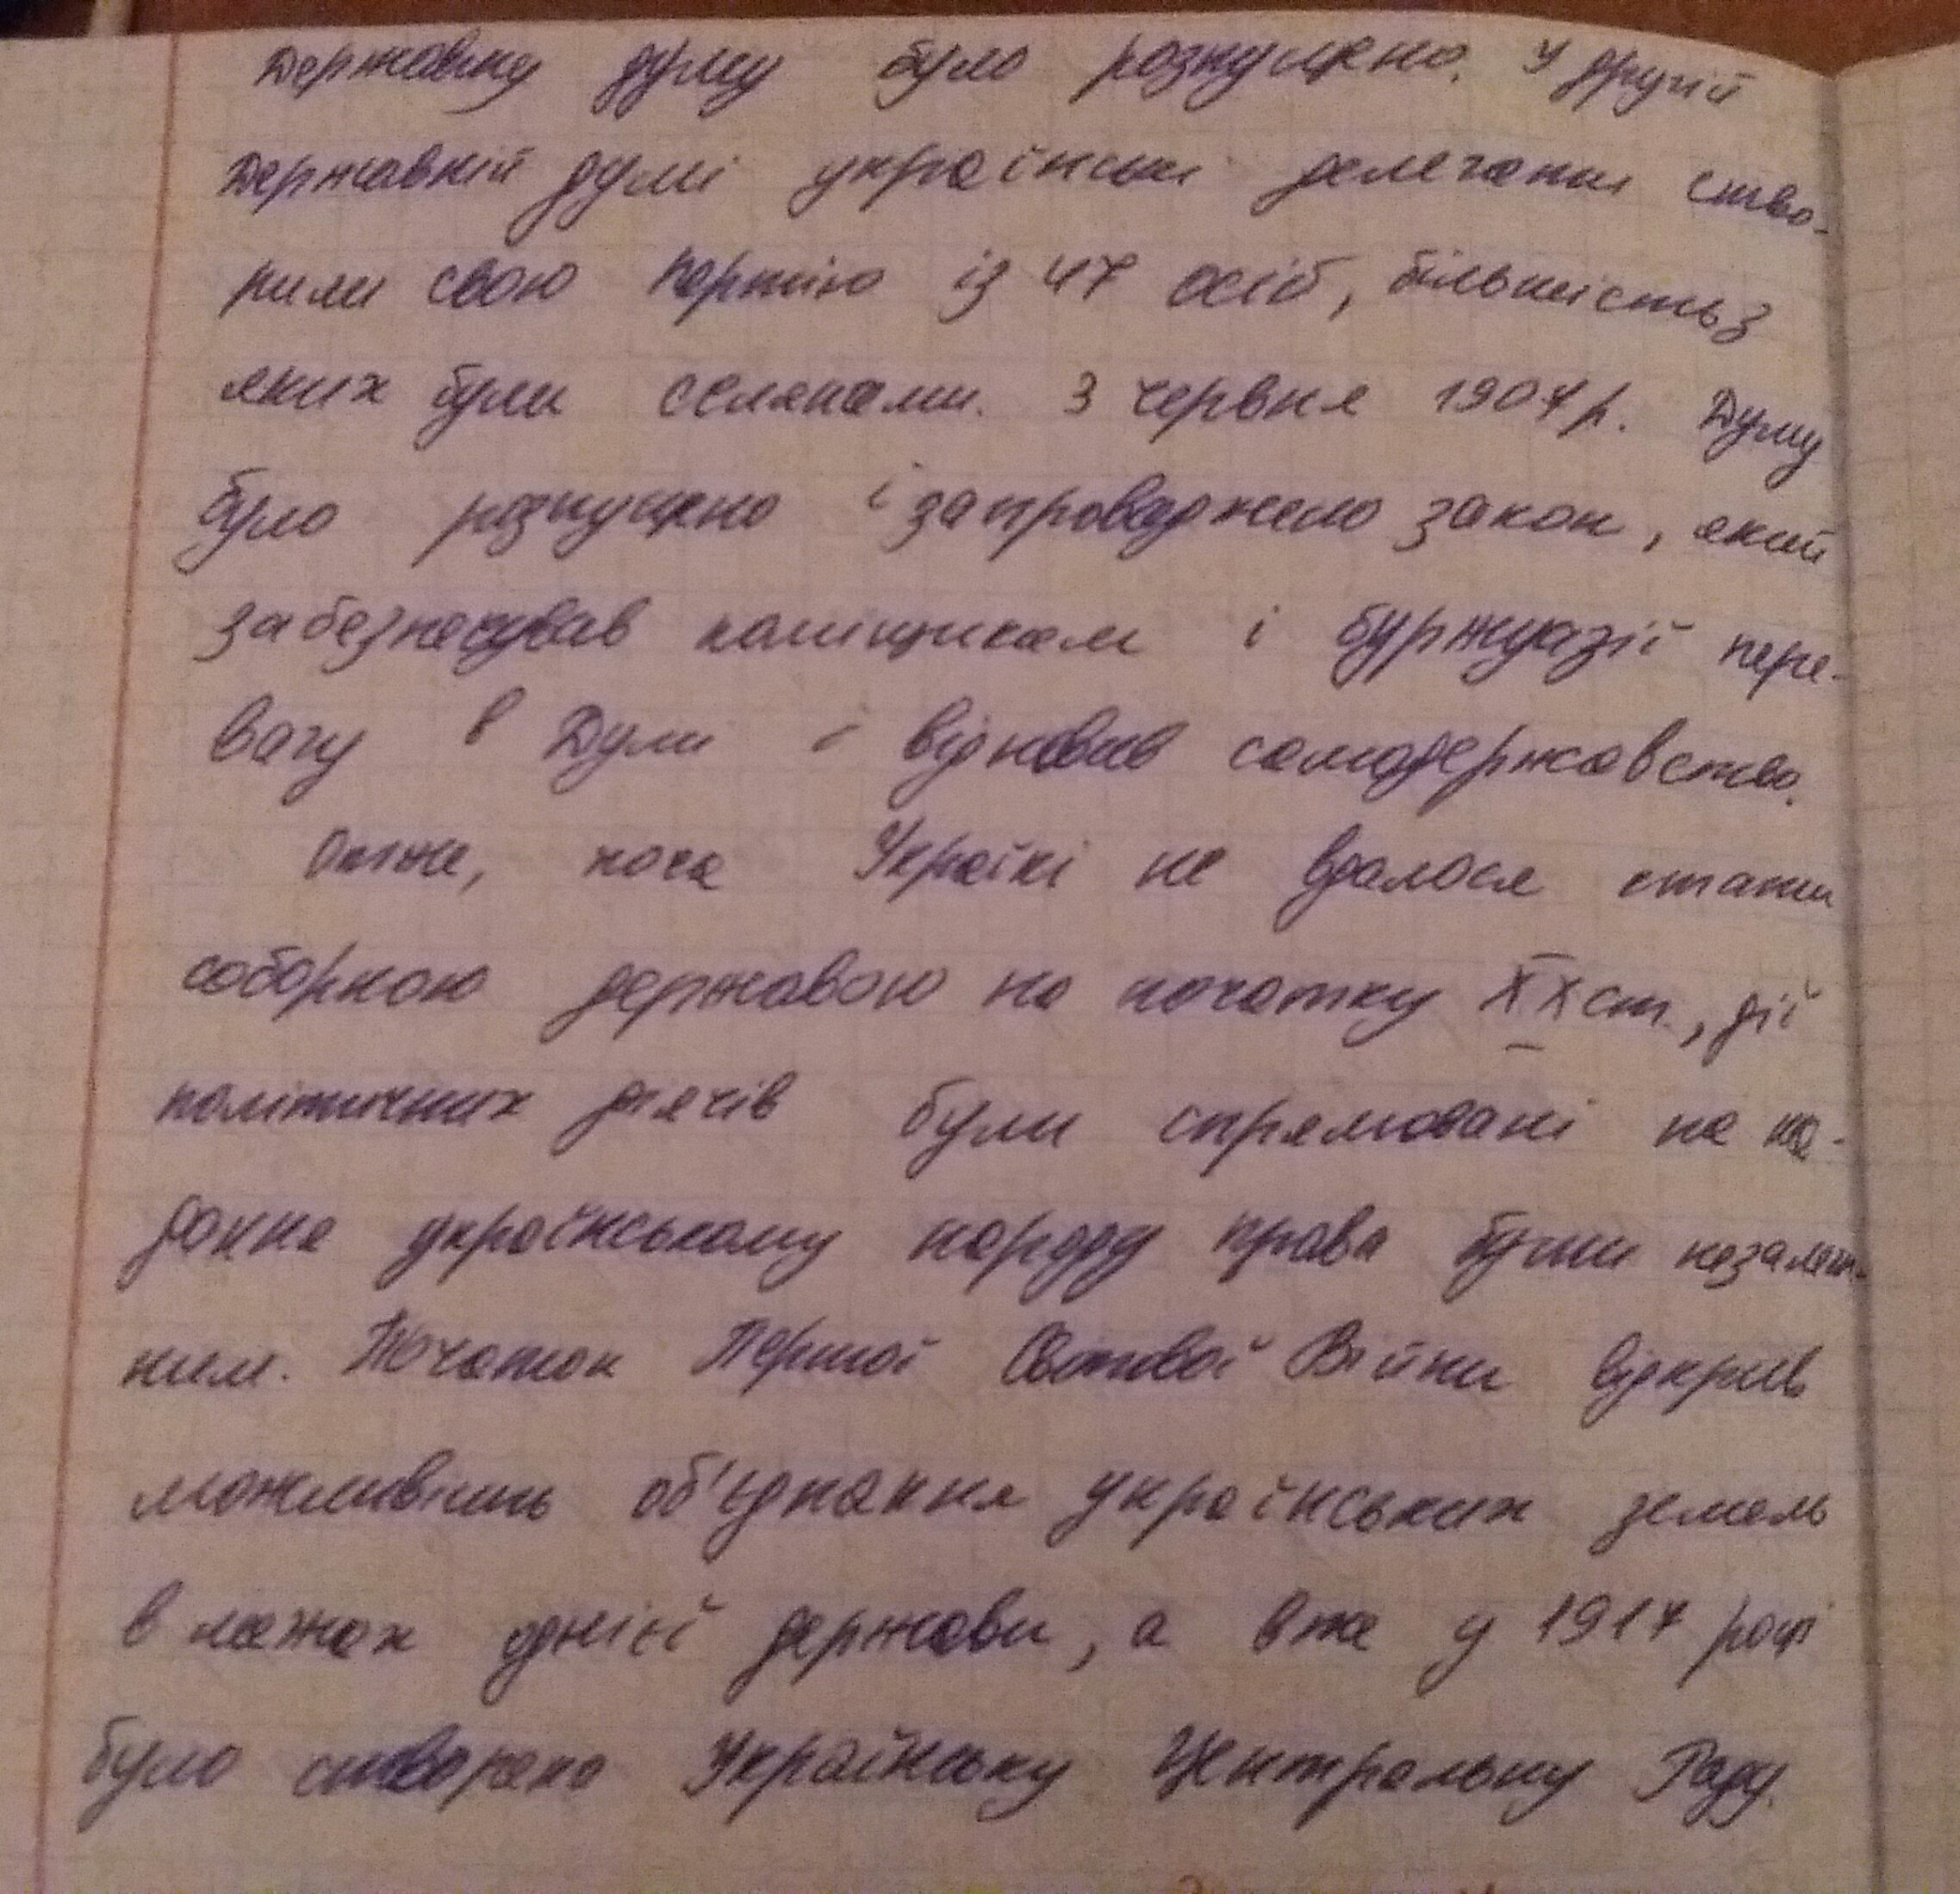 Державну думу було розпущено. У другій
Державній думі українські делегати ство-
рили свою партію із 47 осіб, більшість з
яких були селянами. 3 червня 1907 р. Думу
було розпущено і запроваджено закон, який
забезпечував поміщикам і буржуазії пере-
вагу в Думі і відновив самодержавство.
Отже, хоча Україні не вдалося стати
соборною державою на початку XX ст., дії
політичних діячів були спрямовані на на-
дання українському народу права бути незалеж-
ним. Початок Першої Світової Війни відкрив
можливість об'єднання українських земель
в межах однієї держави, а вже у 1917 році
було створено Українську Центральну Раду.